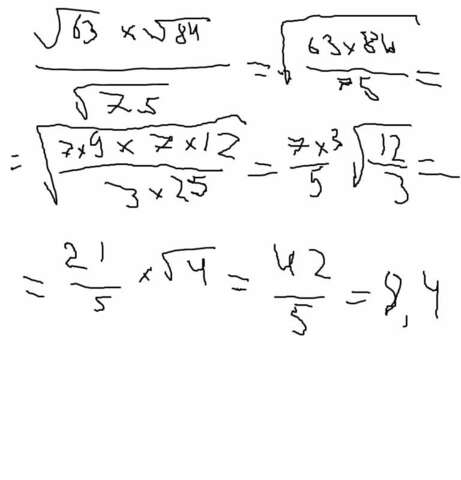 √63 × √84 / √75 = √(63×84 / 75) =
= √(7×9 × 7×12 / 3×25) = 7×3/5 √(12/3) =
= 21/5 × √4 = 42/5 = 8,4